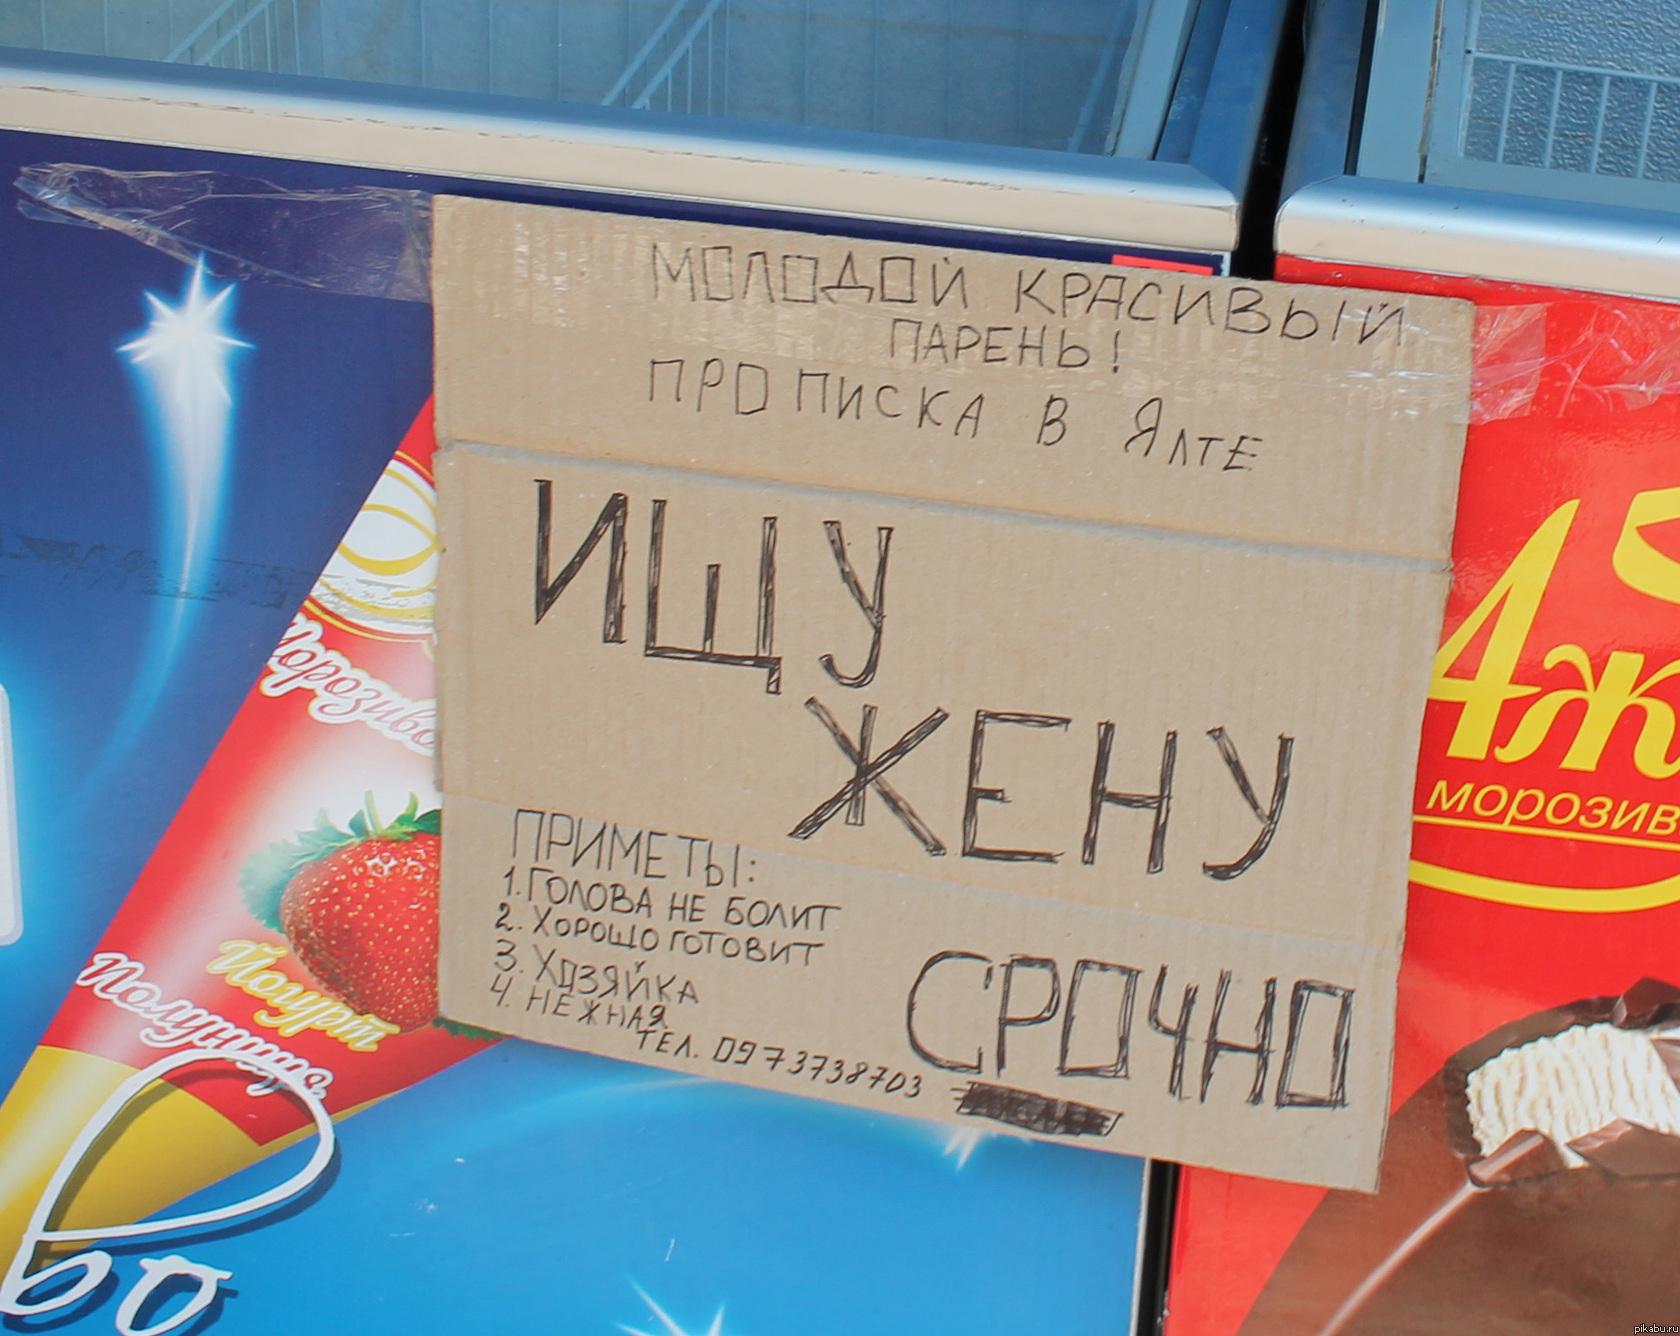 МОЛОДОЙ КРАСИВЫЙ
ПАРЕНЬ!
ПРОПИСКА В ЯЛТЕ
ИЩУ
ЖЕНУ
ПРИМЕТЫ:
1. ГОЛОВА НЕ БОЛИТ
2. ХОРОШО ГОТОВИТ
3. ХОЗЯЙКА
4. НЕЖНАЯ
ТЕЛ. 0973738703
СРОЧНО
Морозиво
Йогурт
Полуниця
морозив
pikabu.ru